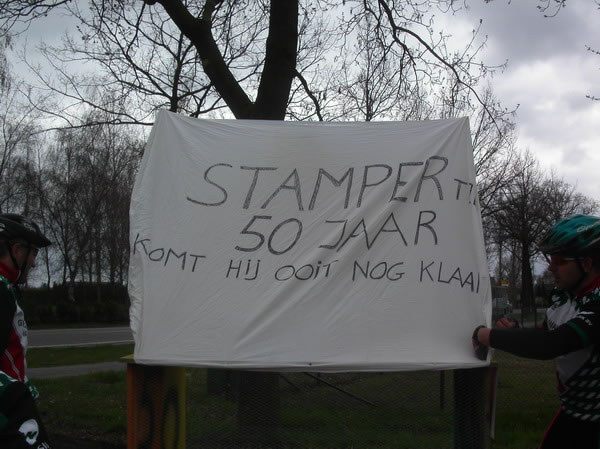 STAMPER
50 JAAR
KOMT HIJ OOIT NOG KLAAR